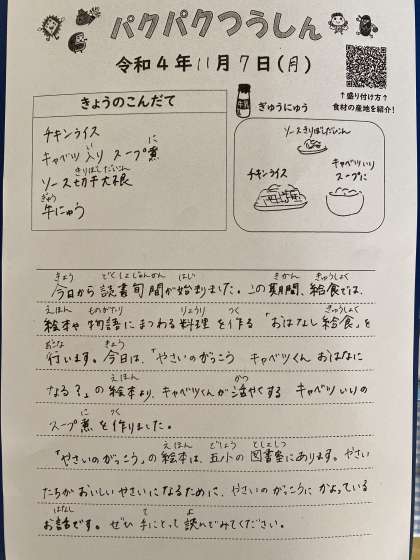 パクパクつうしん
令和4年11月7日(月)
↑盛り付け方↑
食材の産地を紹介!
きょうのこんだて
チキンライス
キャベツ入り スープ煮
ソース切干大根
牛にゅう
牛乳
ぎゅうにゅう
ソースきりぼしだいこん
チキンライス
キャベツいり
スープに
今日から読書旬間が始まりました。この期間、給食では、
絵本や物語にまつわる料理を作る「おはなし給食」を
行います。今日は、「やさいのがっこう キャベツくん おはなに
なる?」の絵本より、キャベツくんが活やくする キャベツいりの
スープ煮を作りました。
「やさいのがっこう」の絵本は、五小の図書室にあります。やさい
たちがおいしいやさいになるために、やさいのがっこうにかよっている
お話です。ぜひ手にとって読んでみてください。